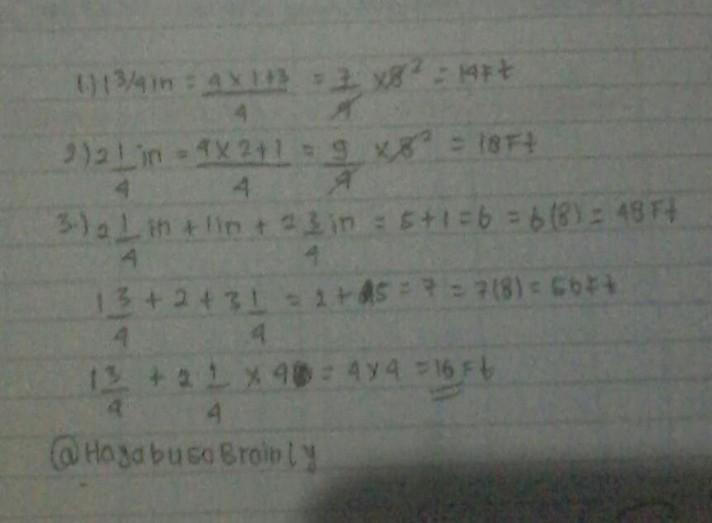 1.) 1 3/4 in = 4 x 1 + 3 / 4 = 7/4 x 8 2 = 14 Ft
2) 2 1/4 in = 4 x 2 + 1 / 4 = 9/4 x 8 2 = 18 Ft
3.) 2 1/4 in + 1 in + 2 3/4 in = 5 + 1 = 6 = 6(8) = 48 Ft
1 3/4 + 2 + 3 1/4 = 2 + 5 = 7 = 7(8) = 56 Ft
1 3/4 + 2 1/4 x 4 = 4 x 4 = 16 Ft
@HayabusaBrainly